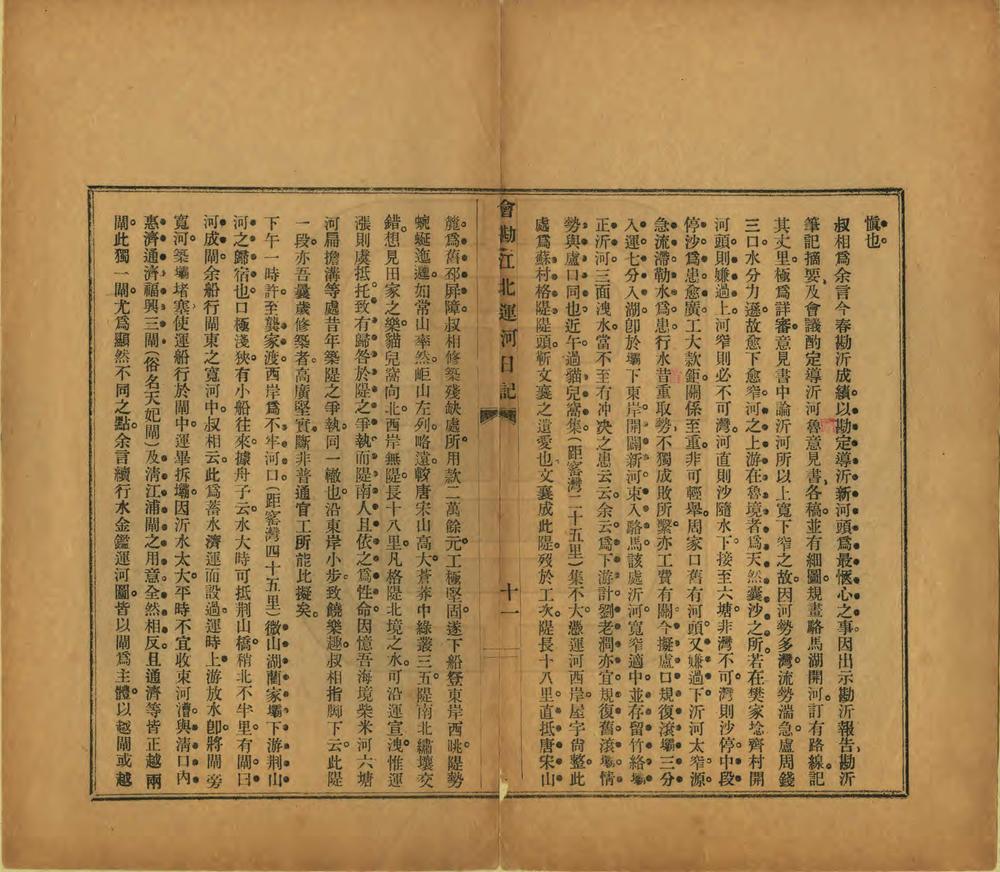 慎也。
叔相爲余言今春勘沂成績。以勘定導沂新河頭爲最愜心之事。因出示勘沂報告、勘沂
筆記摘要、及會議酌定導沂河魯意見書各稿。並有細圖。規畫駱馬湖開河。訂有路線。記
其丈里。極爲詳審。意見書中論沂河所以上寬下窄之故。因河勢多灣。流勢湍急。盧周錢
三口。水分力遜。故愈下愈窄。河之上游。在魯境者。爲天然囊沙之所。若在樊家埝齊村開
河頭。則嫌過上。河窄則必不可灣。河直則沙隨水下。接至六塘。非灣不可。灣則沙停。中段
停沙。爲患愈廣。工大款鉅。關係至重。非可輕舉。周家口舊有河頭。又嫌過下。沂河太窄。源
急流滯。勒水爲患。行水昔重取勢。不獨成敗所繫。亦工費有關。今擬盧口規復滾壩。三分
入運。七分入湖。卽於壩下東岸。開闢新河。東入駱馬。該處沂河。寬窄適中。並存留竹絡壩
正沂河。三面洩水。當不至有冲决之患云云。余云爲下游計。劉老澗亦宜規復舊滾壩。情
勢與盧口同也。近午過貓兒窩集(距窰灣二十五里)集不大。憑運河西岸。屋宇尙整。此
處爲蘇村格隄隄頭。靳文襄之遺愛也。文襄成此隄。歿於工次。隄長十八里。直抵唐宋山
會勘江北運河日記
十一
䕶爲舊邳屏障。叔相修築殘缺處。所用款二萬餘元。工極堅固。遂下船登東岸西眺。隄勢
蜿蜒迤邐。如常山率然。岠山左列略遠。較唐宋山高大。蒼莽中綠叢三五。隄南北繡壤交
錯。想見田家之樂。貓兒窩向北。西岸無隄。長十八里。凡格隄北境之水。可沿運宣洩。惟運
漲則虞抵托。致有歸咎於隄之爭執。而隄南人且依之爲性命。因憶吾海境柴米河六塘
河扁擔溝等處。昔年築隄之爭執。同一轍也。沿東岸小步。致饒樂趣。叔相指脚下云。此隄
一段。亦吾曩歲修築者。高廣堅實。斷非普通官工所能比擬矣。
下午一時許。至龔家渡。西岸爲不牢河口(距窰灣四十五里)微山湖藺家壩下游。荆山
河之歸宿也。口極淺狹。有小船往來。據舟子云。水大時可抵荆山橋。稍北不半里。有閘曰
河成閘。余船行閘東之寬河中。叔相云。此爲蓄水濟運而設。過運時。上游放水。卽將閘旁
寬河。築壩堵塞。使運船行於閘中。運畢拆壩。因沂水太大。平時不宜收束河漕。與淸口內
惠濟、通濟、福興三閘(俗名天妃閘)及淸江浦閘之用意。全然相反。且通濟等皆正越兩
閘。此獨一閘。尤爲顯然不同之點。余言續行水金鑑運河圖。皆以閘爲主體。以越閘或越